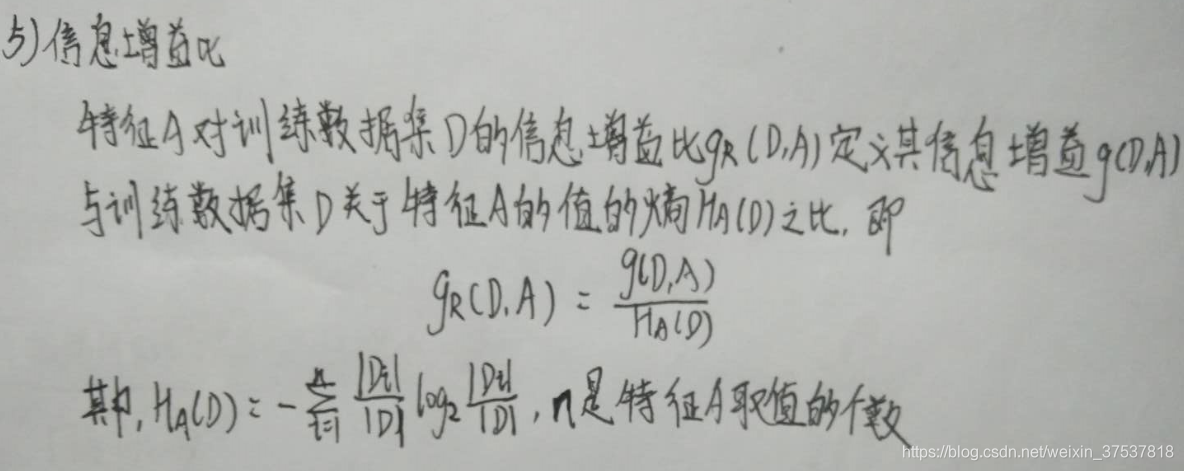 5) 信息增益比
特征A对训练数据集D的信息增益比gR(D,A)定义其信息增益g(D,A)
与训练数据集D关于特征A的值的熵HA(D)之比, 即
gR(D,A) = g(D,A) / HA(D)
其中, HA(D) = -∑_{i=1}^{n} |Di|/|D| log2 |Di|/|D|, n是特征A取值的个数
https://blog.csdn.net/weixin_37537818